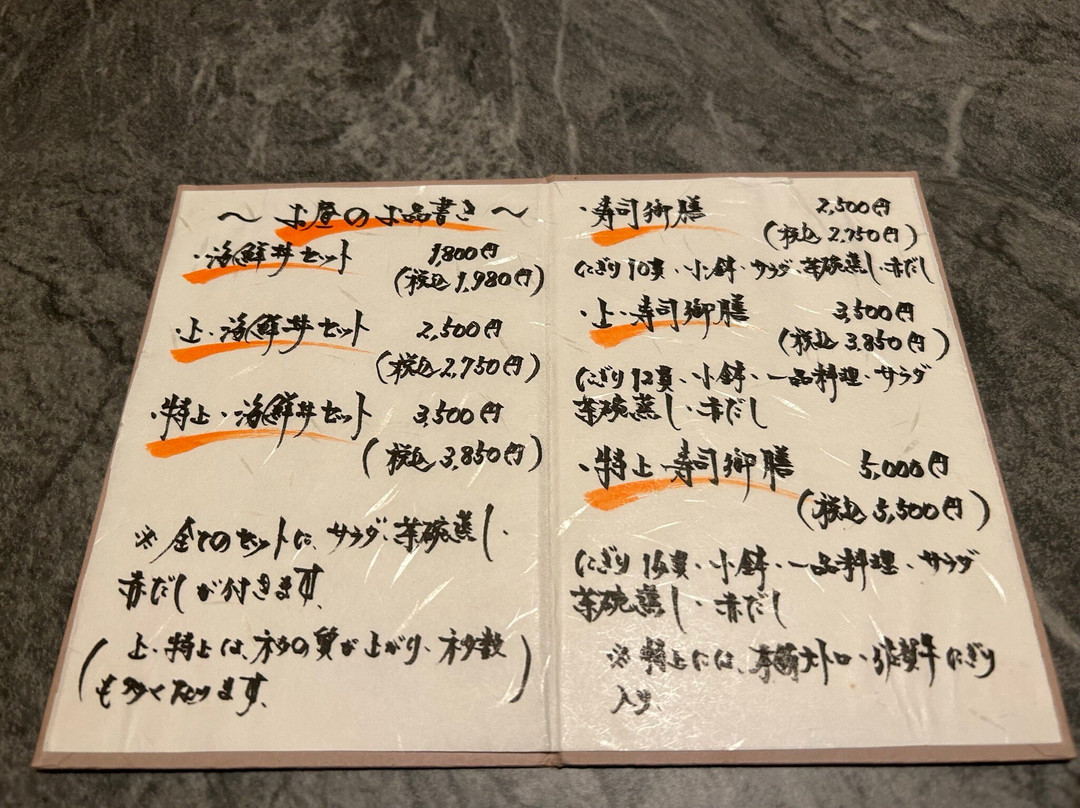 ～ お昼のお品書き ～
・海鮮丼セット 1,800円
(税込 1,980円)
・上・海鮮丼セット 2,500円
(税込 2,750円)
・特上・海鮮丼セット 3,500円
(税込 3,850円)
※ 全てのセットに、サラダ・茶碗蒸し・
赤だしが付きます。
(上・特上は、ネタの質が上がり、ネタ数
も多くなります。)
・寿司御膳 2,500円
(税込 2,750円)
にぎり10貫・小鉢・サラダ・茶碗蒸し・赤だし
・上・寿司御膳 3,500円
(税込 3,850円)
にぎり12貫・小鉢・一品料理・サラダ
茶碗蒸し・赤だし
・特上 寿司御膳 5,000円
(税込 5,500円)
にぎり 16貫・小鉢・一品料理・サラダ
茶碗蒸し・赤だし
※ 特上には、大トロ・にぎり
入り。